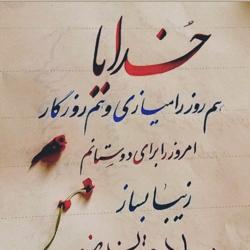 خدایا
هم روز را میسازی و هم روزگار
امروز را برای دوستانم
زیبا بساز